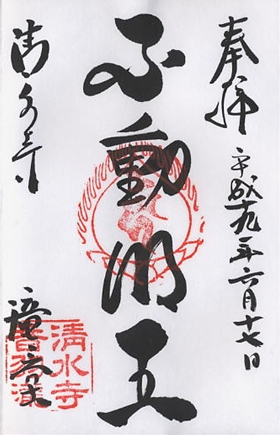 奉拝
平成十九年六月十七日
不動明王
清水寺
清水寺